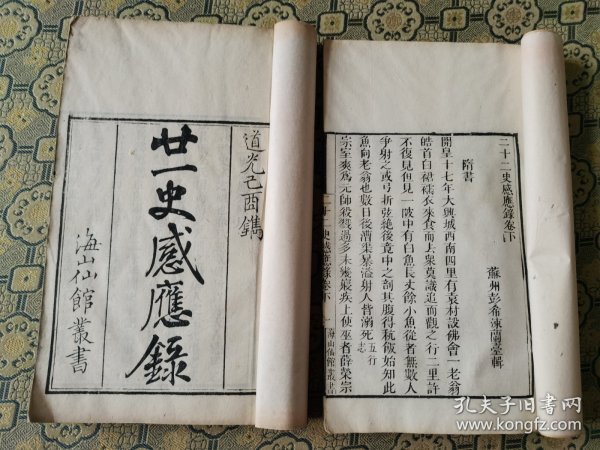 道光己酉鐫
廿一史感應錄
海山仙館叢書
二十二史感應錄卷下
蘇州彭希涑蘭臺輯
隋書
開皇十七年大興城西南四里有袁村設佛會一老翁
皓首白裙襦衣來食而上衆莫識追而觀之行二里許
不復見但見一陂中有白魚長丈餘小魚從者無數人
爭射之或弓折弦絕後竟中之剖其腹得秔飯始知此
魚向老翁也數日後漕渠暴溢射人皆溺死 五行志
宗室爽爲元帥 從戮過多未幾寢疾上使巫者薛榮宗
二十二史感應錄卷下 一 海山仙館叢書
孔夫子旧书网
www.kongfz.com